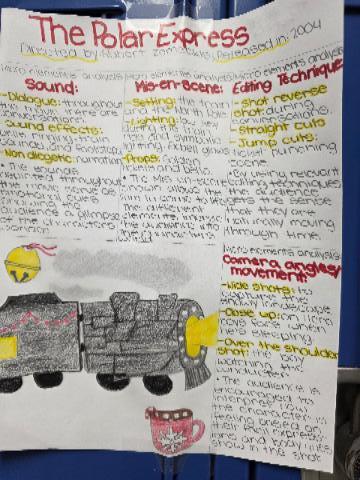 The Polar Express
Directed by Robert Zemeckis, Released in: 2004
Micro elements analysis
Sound:
- Dialogue: throughout
there are
conversations.
- Sound effects:
train
sounds, and footsteps
- Non diegetic: narration
• The sounds
throughout
the movie serve as
emotional cues
audience a glimpse
Micro elements analysis
Mis-en-Scene:
- Setting: the train
and the North Pole
- Lighting:
during the train
lighting, bell glows
- Props: golden
ticket and bell.
The
known allows the
to come to life
The different
elements, immerse
the audience into
Micro elements analysis
Editing Technique
- Shot reverse
shot: during
conversations.
- Straight cuts
- Jump cuts:
ticket punching
scene
• By using relevant
editing techniques
the audience
gets the sense
that they are
moving
through time.
Micro elements analysis
Camera angles/
movement:
- Wide shots: to
capture the
snowy landscape
- Close up: on
boys face when
he's sleeping.
- Over the shoulder
shot: the boy
watching the
conductor
• The audience is
encouraged to
interpret how
the characters
feeling based on
their expressions
and body lines
show in the shot.